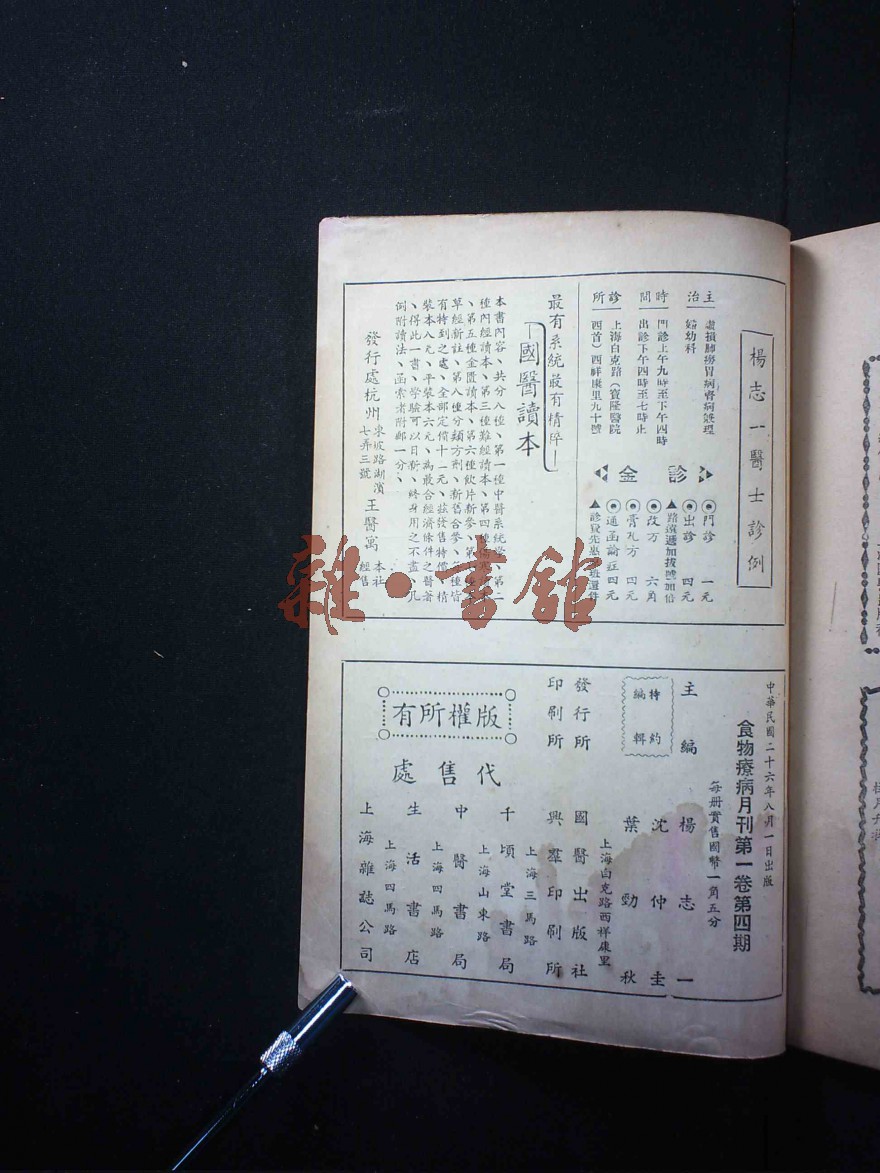 楊志一醫士診例
主治
虛損肺癆胃病腎病調理
婦幼科
時間
門診上午九時至下午四時
出診下午四時至七時止
診所
上海白克路(寶隆醫院
西首)西祥康里九十號
診金
門診 一元
出診 四元
路遠遞加拔號加倍
改方 六角
膏丸方 四元
通函論症四元
最有系統最有精粹
國醫讀本
本書內容、共分八種、第一種中醫系統學、第二
種內經讀本、第三種難經讀本、第四種傷寒讀本
、第五種金匱讀本、第六種飲片新參、第七種本
草經新註、第八種分類方劑、新舊合參、各種皆
有特到之處、全部定價十一元、茲發售特價、精
裝本八元、平裝本六元、為最合經濟條件之醫著
、得此一書、學驗可以日新、終身用之不盡、凡
例附讀法、函索者附郵一分、
發行處杭州
東坡路湖濱
七弄三號
王醫寓
本社
經售
中華民國二十六年八月一日出版
食物療病月刊第一卷第四期
每册實售國幣一角五分
主編 楊志一
特約編輯
沈仲圭
葉勁秋
上海白克路西祥康里
發行所 國醫出版社
印刷所 興羣印刷所
版權所有
代售處
上海三馬路
千頃堂書局
上海山東路
中醫書局
上海四馬路
生活書店
上海四馬路
上海雜誌公司
雜·書館